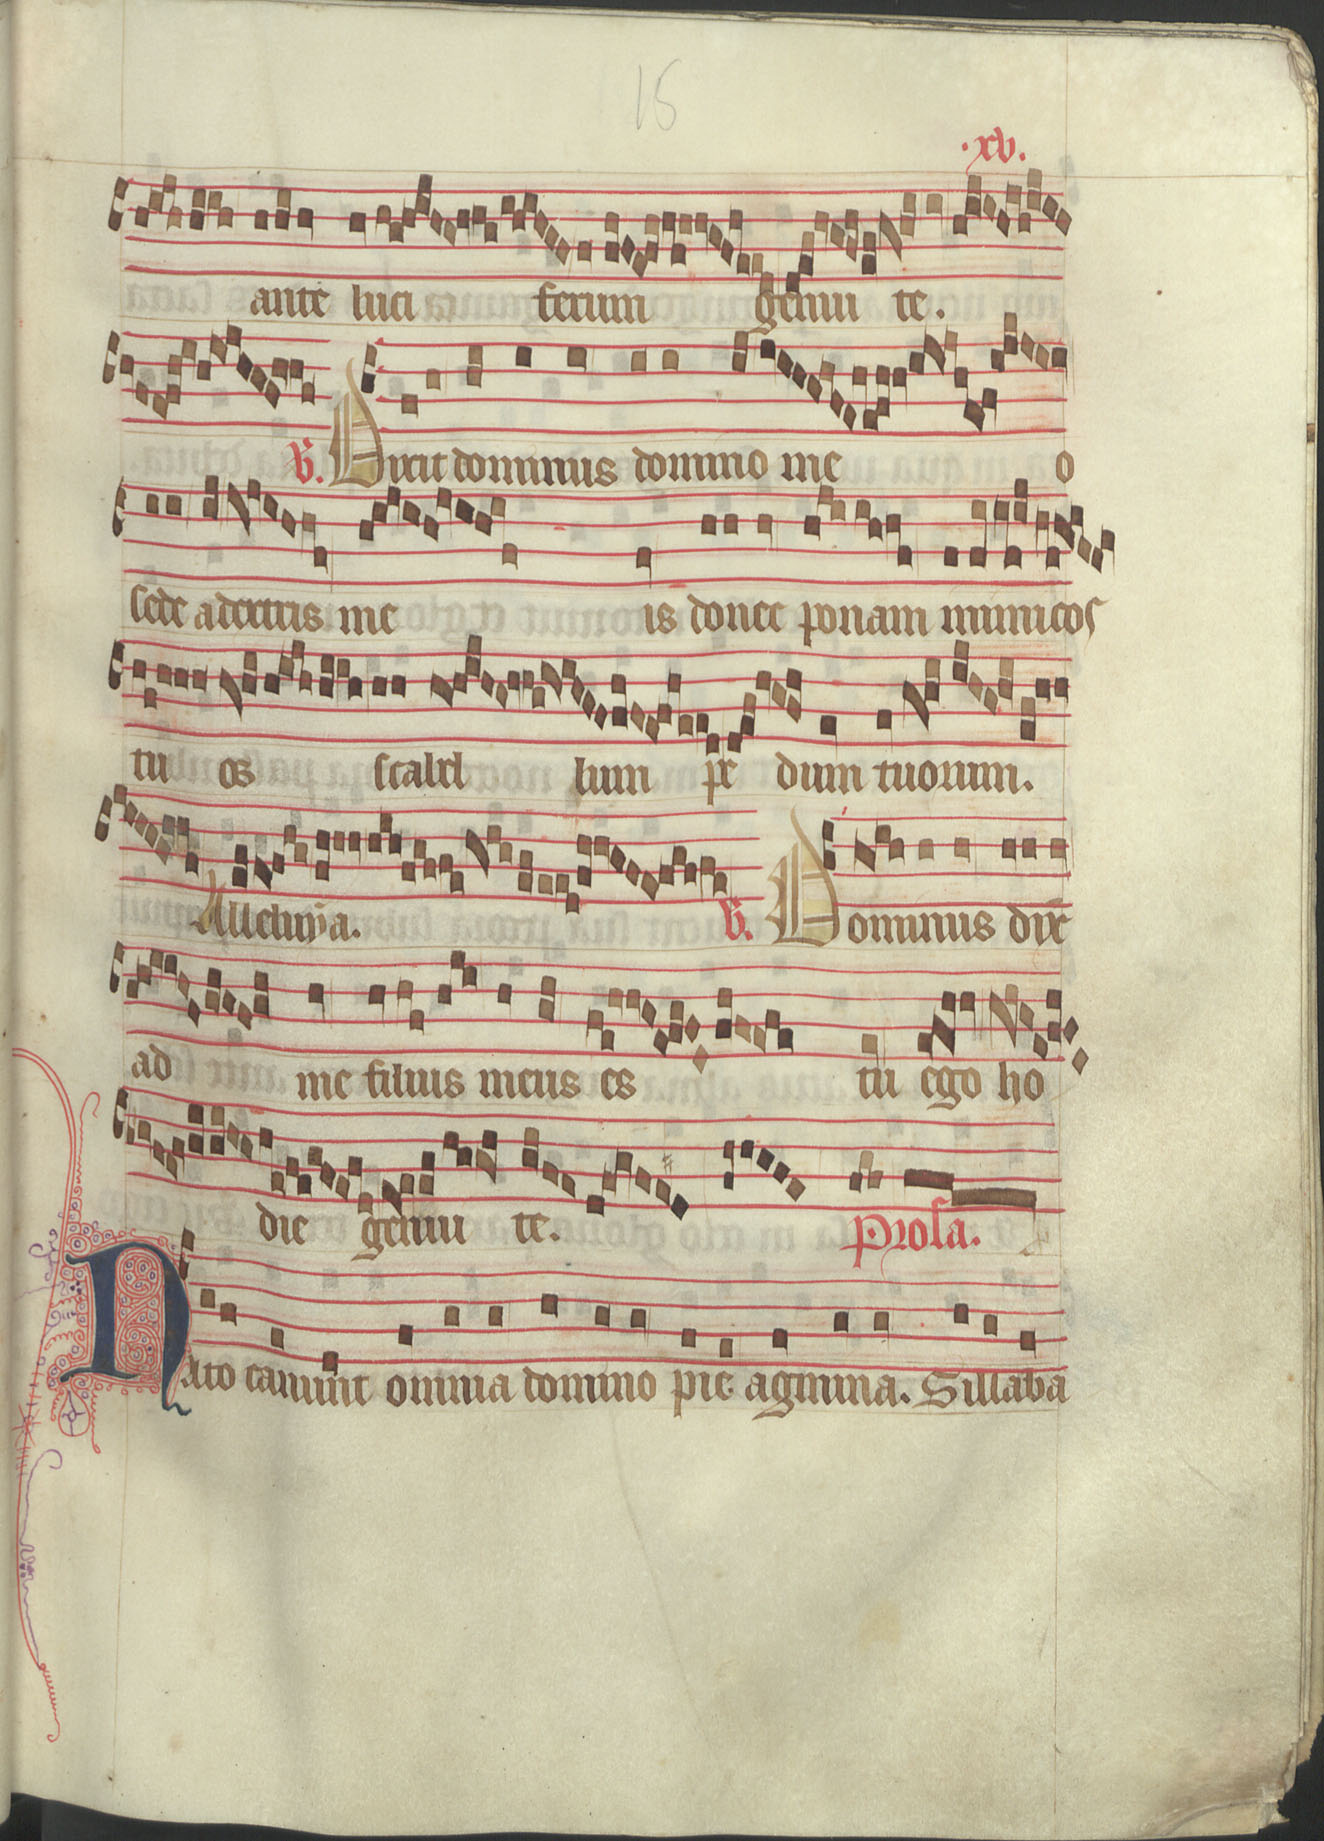 15
.xv.
ante luci ferum genui te.
V. Dixit dominus domino me o
sede adextris me is donec ponam inimicos
tu os scabel lum pe dum tuorum.
Alleluya. V. Dominus dix
ad me filius meus es tu ego ho
die genui te. Prosa.
Nato canunt omnia domino pie agmina. Sillaba